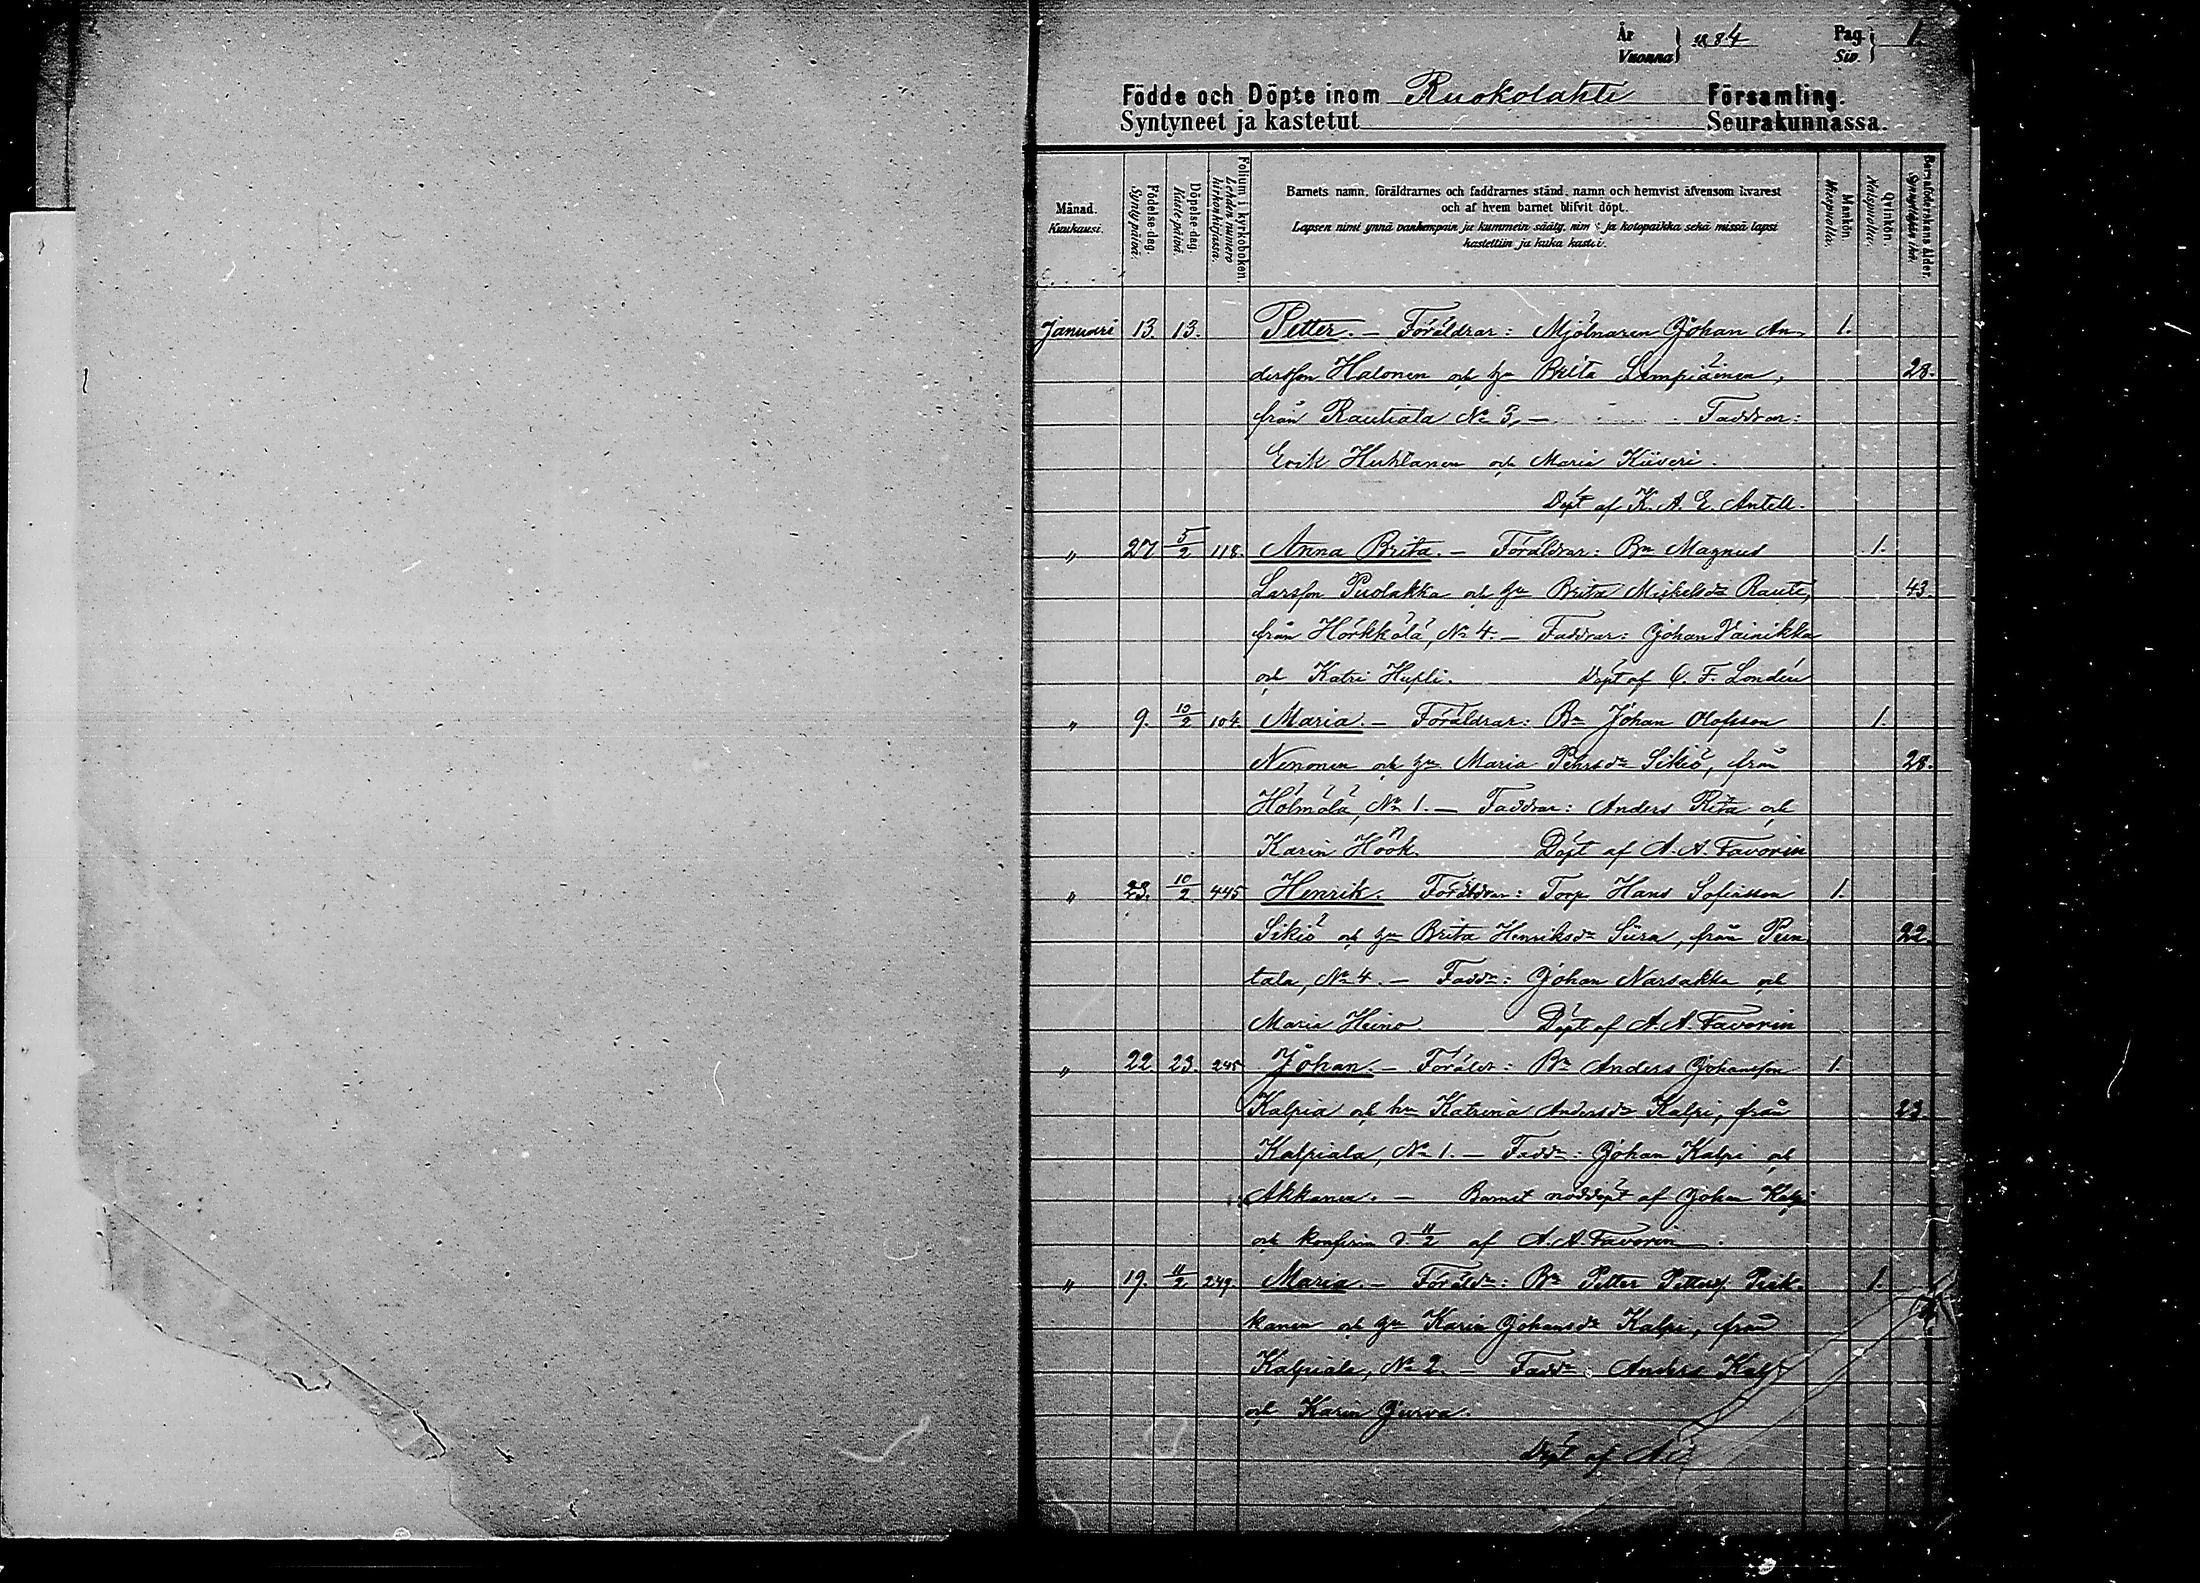 År Vuonna } 1884 Pag. Siv. } 1.
Födde och Döpte inom Ruokolahti Församling.
Syntyneet ja kastetut Seurakunnassa.
Månad. Kuukausi.
Födelse dag. Syntypäivä.
Döpelse dag. Kaste päivä.
Folium i kyrkoboken. Lehden numero kirkonkirjassa.
Barnets namn, föräldrarnes och faddrarnes stånd, namn och hemvist äfvensom hvarest
och af hvem barnet blifvit döpt.
Lapsen nimi ynnä vanhempain ja kummein sääty, nimi ja kotopaikka sekä missä lapsi
kastettiin ja kuka kastoi.
Mankön. Miespuolia.
Qvinkön. Naispuolia.
Barnaföderskans ålder. Synnyttäjän ikä.
Januari 13. 13. Petter. – Föräldrar: Mjölnaren Johan An- 1.
dersson Halonen och hu Brita Lempiäinen, 28.
från Rautiala No 3, – Faddrar:
Erik Huhtanen och Maria Kiiveri.
Döpt af K. A. E. Antell.
" 27 5/2 118. Anna Brita. – Föräldrar: Bn Magnus 1.
Larsson Puolakka och hu Brita Mickelsdr Rauti, 43.
från Hörkkölä, No 4. – Faddrar: Johan Vainikka
och Katri Hupli. Döpt af C. F. Londén
" 9. 10/2 104. Maria. – Föräldrar: Bn Johan Olofsson 1.
Nenonen och hu Maria Pehrsdr Sikiö, från 28.
Hölmölä, No 1. – Faddrar: Anders Rita och
Karin Höök. Döpt af A. A. Favorin
" 23. 10/2 445 Henrik. Föräldrar: Torp Hans Sofiasson 1.
Sikiö och hu Brita Henriksdr Siira, från Pun 22.
tala, No 4. – Faddr: Johan Narsakka och
Maria Heino Döpt af A. A. Favorin
" 22. 23. 245 Johan. – Föräldr: Bn Anders Johansson 1.
Kalpia och hu Katrina Andersdr Kalpi, från 23
Kalpiala, No 1. – Faddr: Johan Kalpi och
Akkanen. – Barnet nöddöpt af Johan Kalpi
och konfirm d. 11/2 af A. A. Favorin.
" 19. 11/2 249. Maria. – Föräldr: Bn Petter Petters. Pesk- 1.
kanen och hu Karin Johansdr Kalpi, från
Kalpiala, No 2. – Faddr: Anders Kalp
och Karin Jurva.
Döpt af A